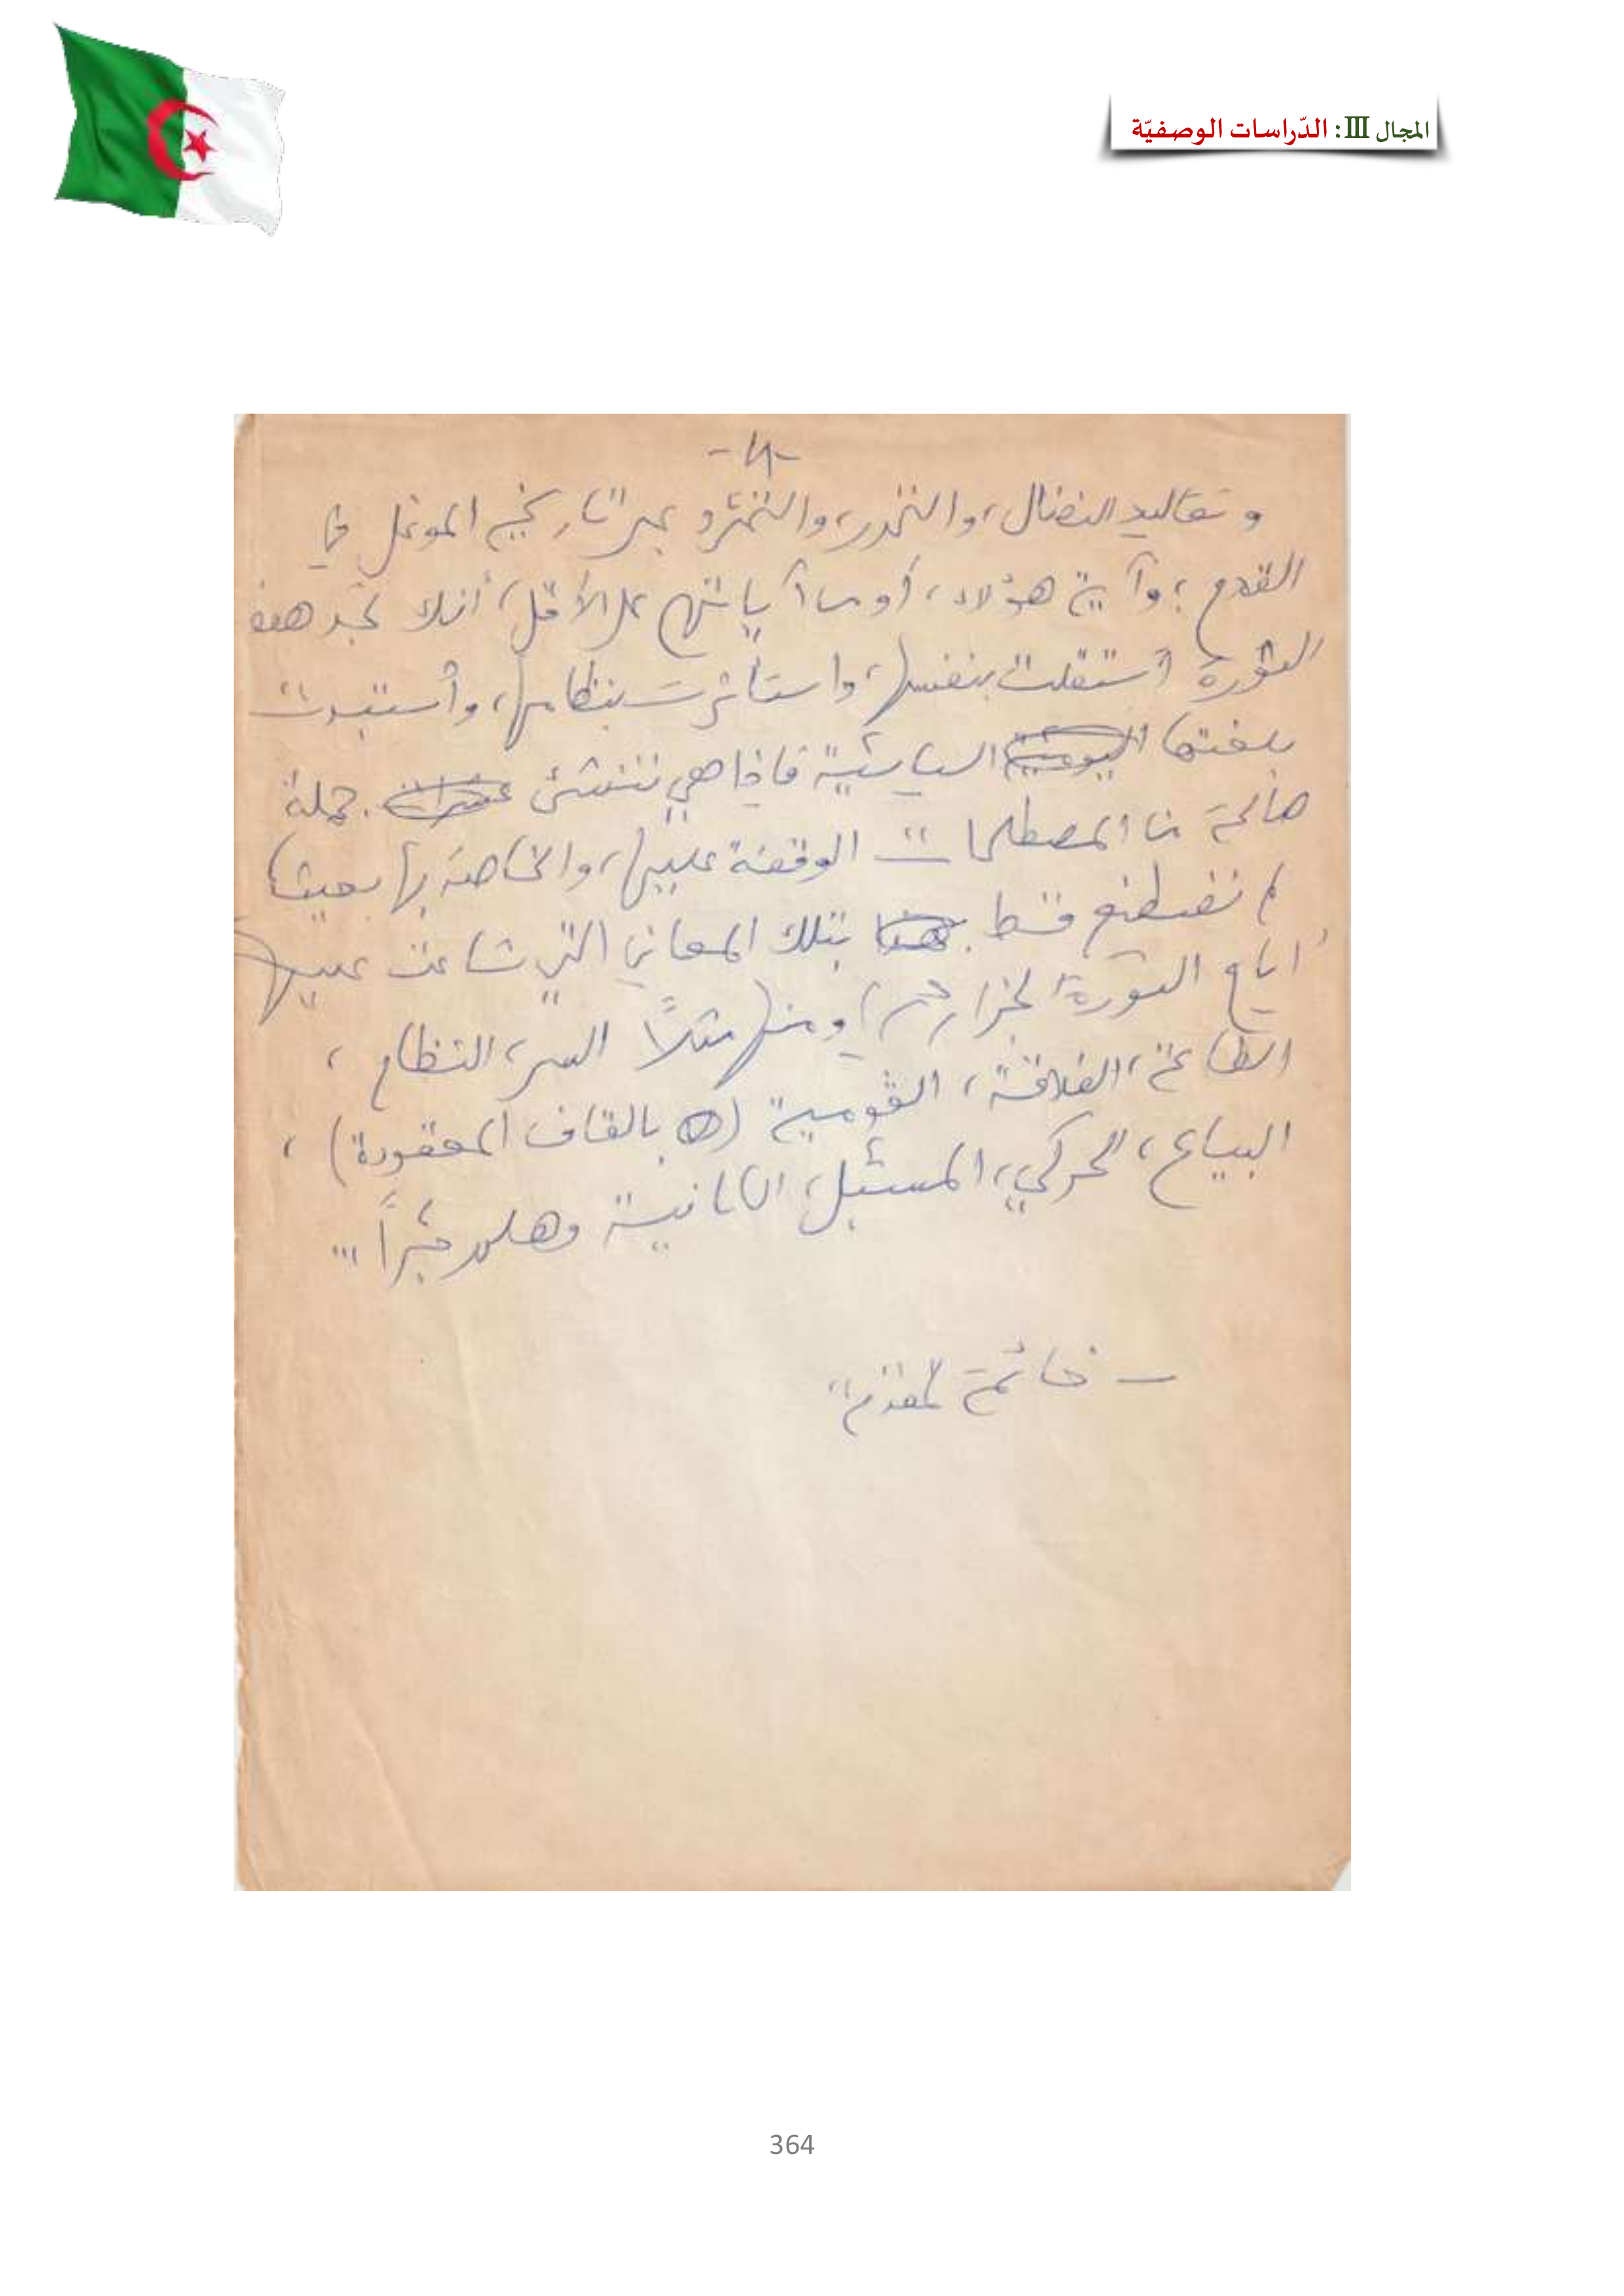 المجال III: الدّراسات الوصفيّة
وتقاليد النضال، والتحرر، والتمرّد عبر التاريخ الموغل في
القدم؛ وآية هؤلاء، أو من آياتهم على الأقل، أنك تجد هذه
الثورة استقلت بنفسها، واستأثرت بنظامها، واستبدت
بلغتها اليومية السياسية فإذا هي تنشئ جملة
صالحة من المصطلحات الوقفة عليها، والخاصة بها بحيث
لم تضطلع قط بتلك المعاني التي شاعت عليها
أيام الثورة الجزائرية، ومنها مثلاً السر، النظام،
الطاعة، الفلاقة، القومية (بالقاف المعقودة)،
البياع، الحركي، المسبل، وهلم جراً ...
– خاتمة المقدمة
364